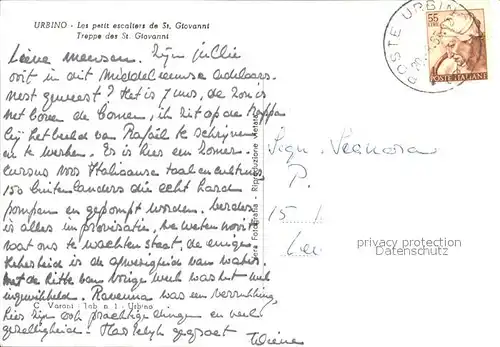 URBINO - Les petit escaliers de St. Giovanni
Treppe des St. Giovanni
Lieve mensen. Zijn jullie
ooit in dit Middeleeuwse adelaars-
nest geweest? Het is 7 uur, de zon is
net boven de bomen, ik zit op de trappen
bij het beeld van Rafaël te schrijven
en te werken. Er is hier een zomer-
cursus voor Italiaanse taal en cultuur,
150 buitenlanders die echt hard
pompen en gepompt worden. Verder
is alles improvisatie. We weten nooit
wat ons te wachten staat, de enige
zekerheid is de afwezigheid van water.
Met de hitte van vorige week was het wel
ingewikkeld. Ravenna was een verrukking,
hier zijn ook prachtige dingen en veel
gezelligheid. Hartelijk gegroet
Wiene
C. Varani - Tab. n. 1 - Urbino
Vera Fotografia - Riproduzione Vietata
POSTE URBINO
55
LIRE
POSTE ITALIANE
Sign.
P.
15
privacy protection
Datenschutz